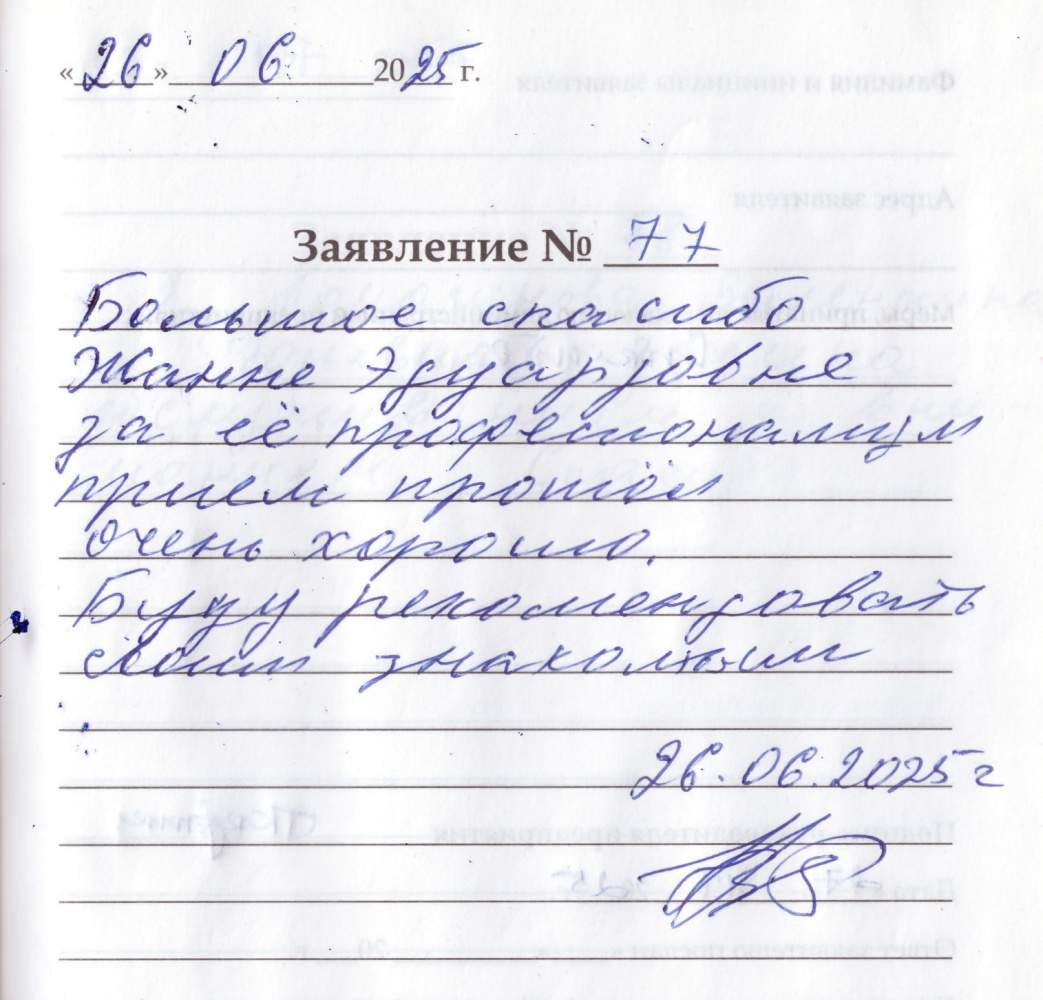 «26» 06 2025 г.
Заявление № 77
Большое спасибо
Жанне Эдуардовне
за её професионализм
прием прошёл
очень хорошо.
Буду рекомендовать
своим знакомым
26.06.2025 г